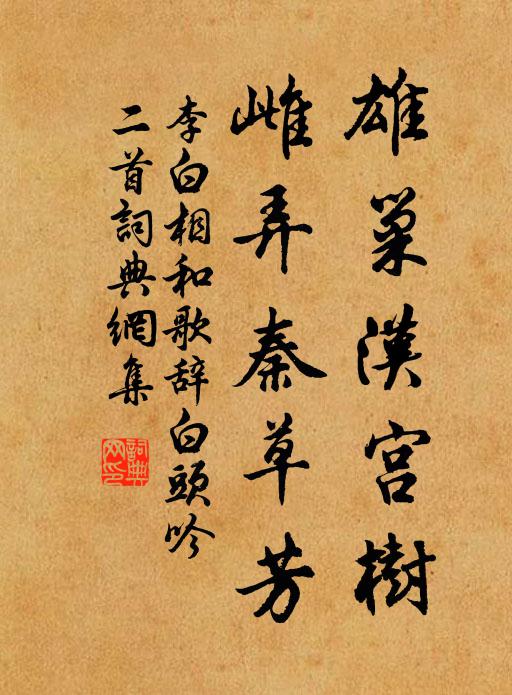 雄巢漢宮樹
雌弄秦草芳
李白相和歌辞白頭吟
二首詞典網集
詞典网印